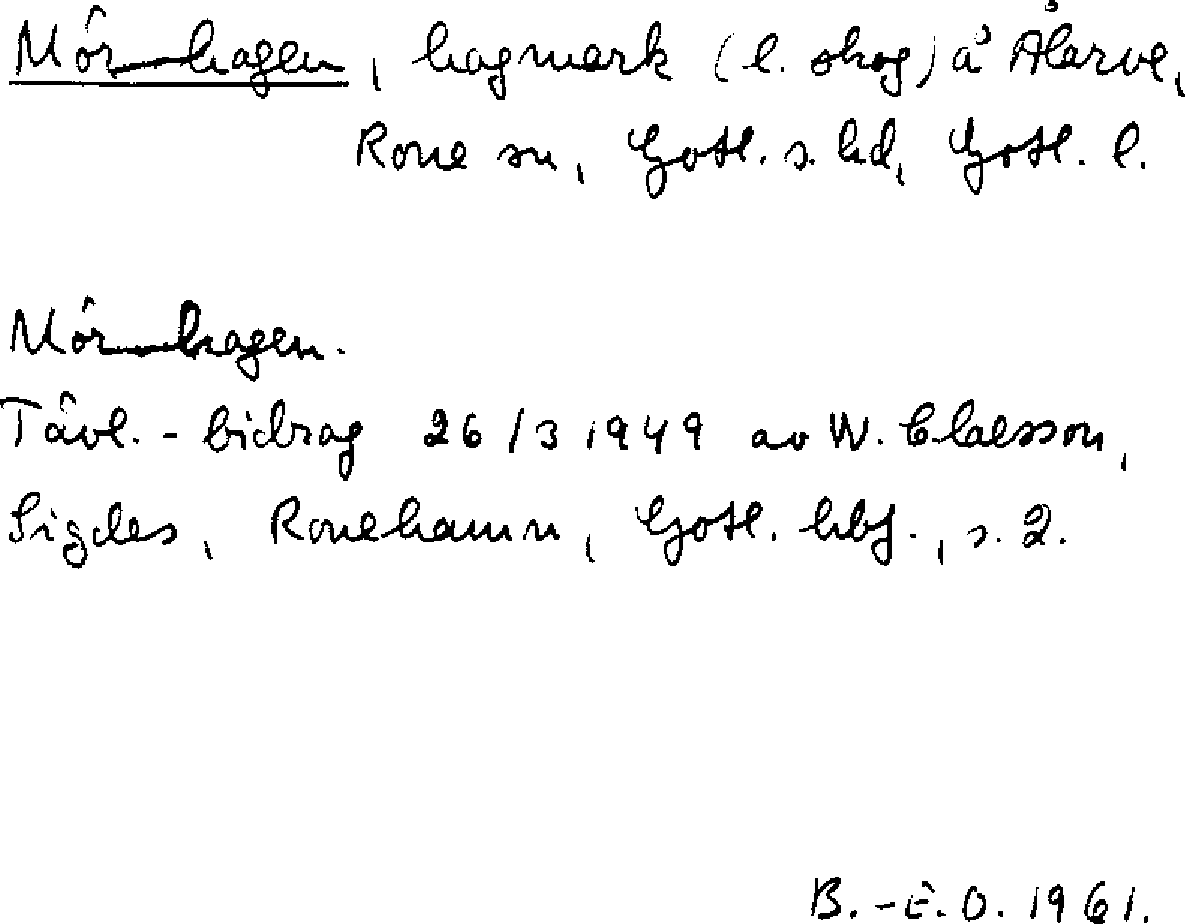 Mör-hagen, hagmark (l. skog) å Ålarve,
Rone sn, Gotl. s. hd, Gotl. l.
Mör-hagen.
Tävl.-bidrag 26/3 1949 av W. Claesson,
Sigdes, Ronehamn, Gotl. hbf., s. 2.
B.-E.O. 1961.